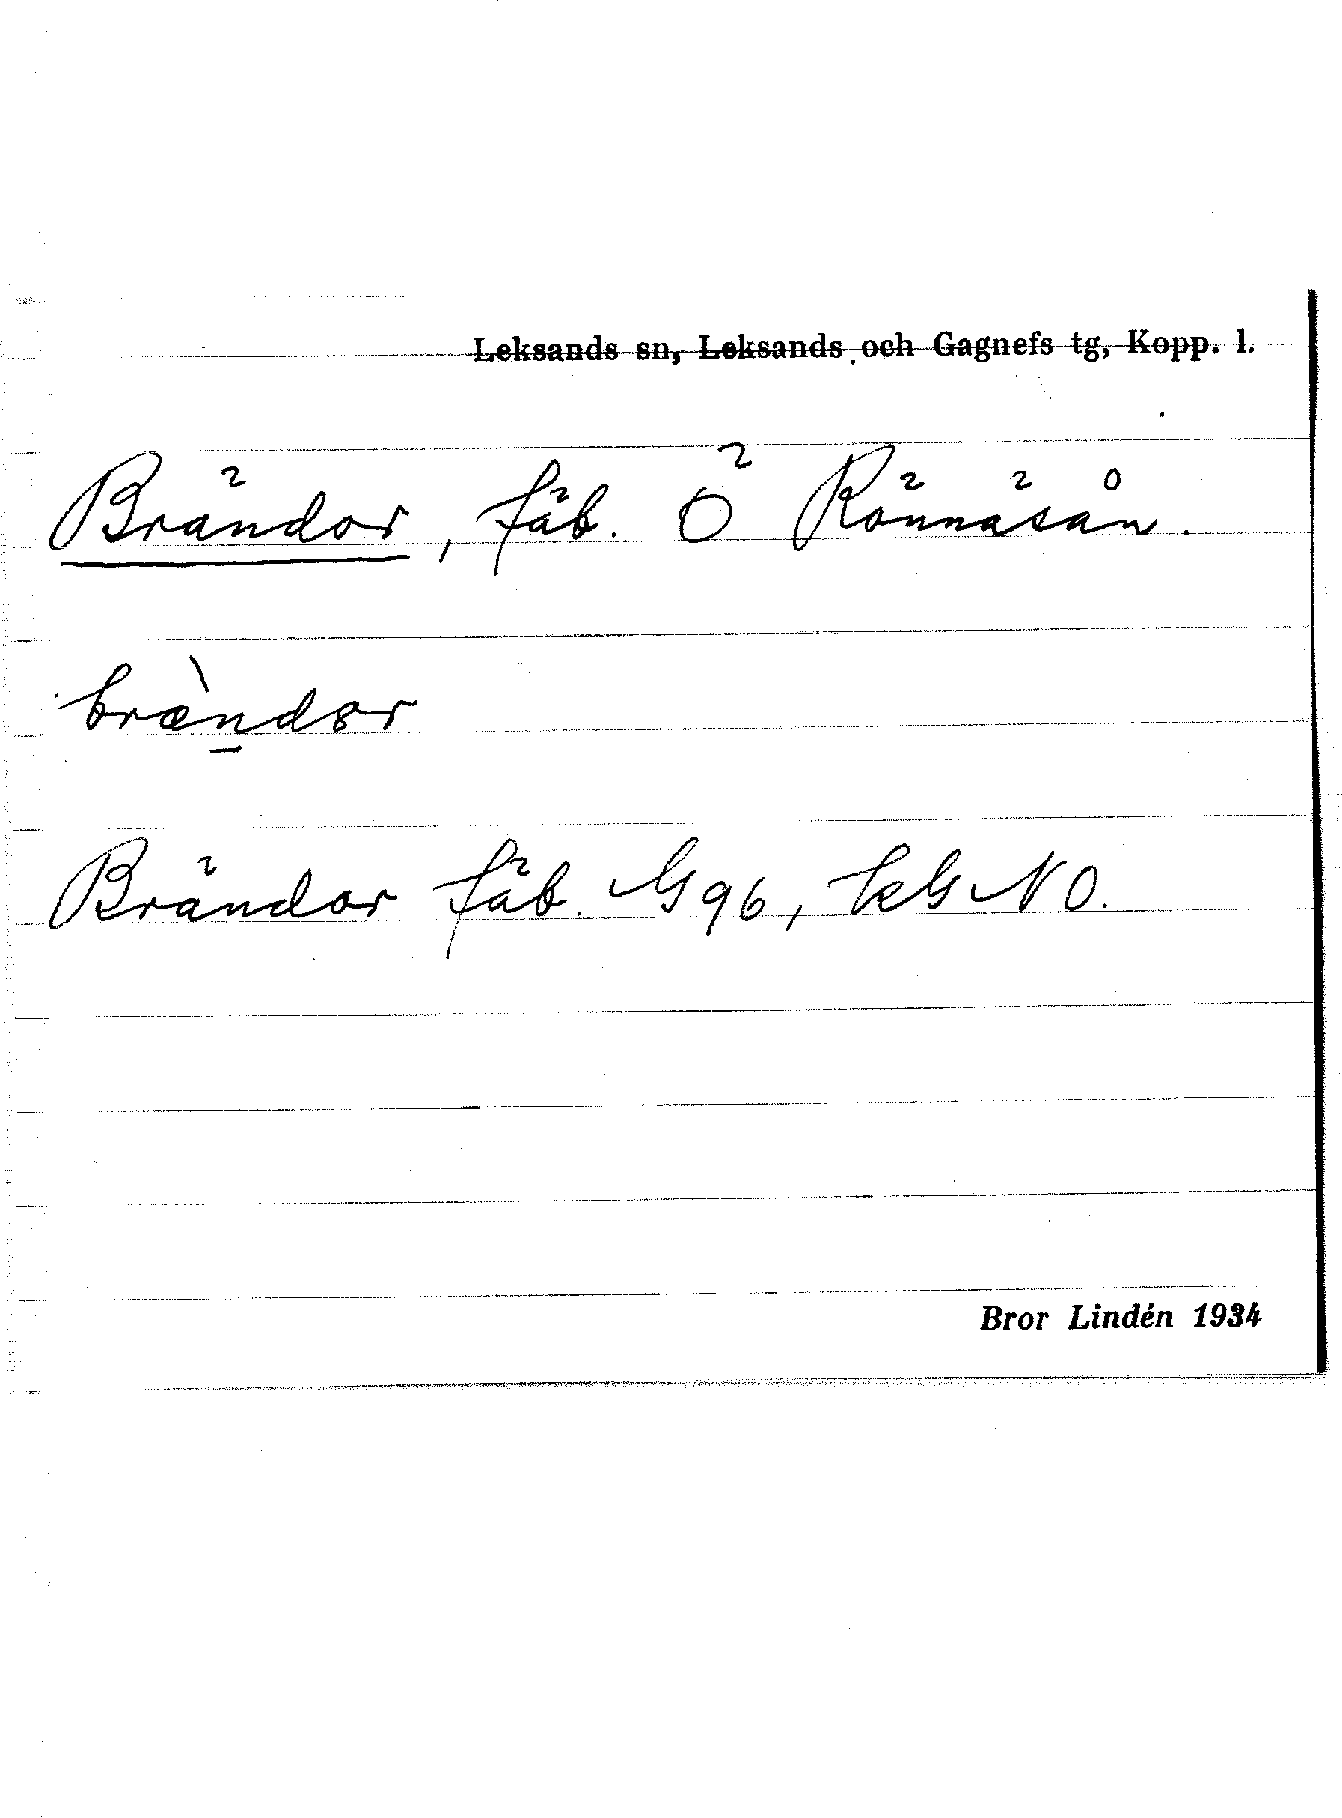 Leksands sn, Leksands och Gagnefs tg, Kopp. l.
Brändor, fäb. Ö Rönnäsån.
bræ̀ndor
Brändor fäb. G96, kG NO.
Bror Lindén 1934